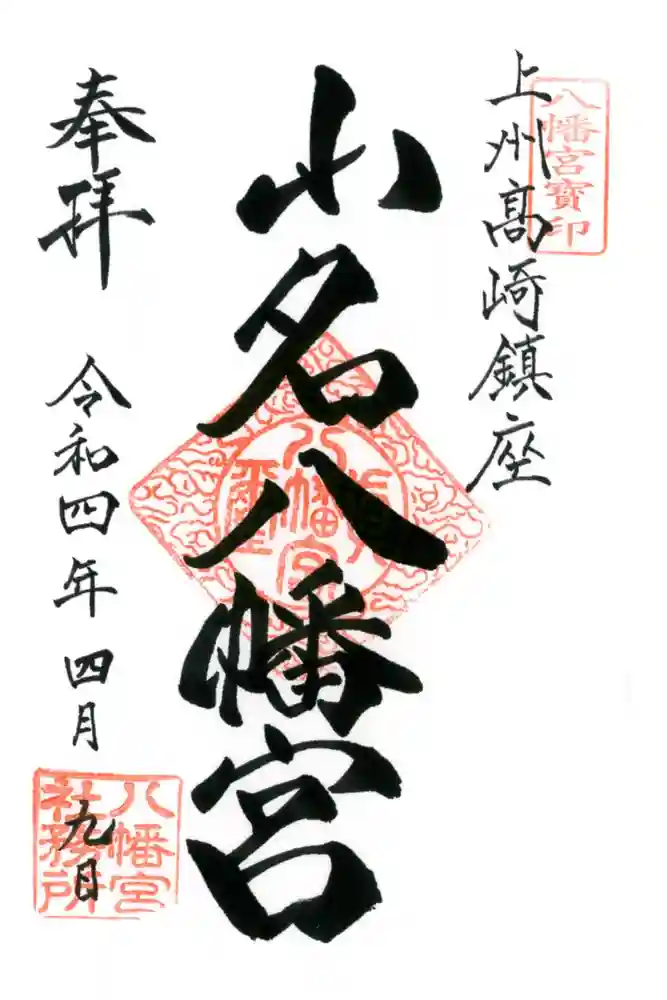 上州高崎鎮座
八幡宮寶印
小名八幡宮
奉拝
令和四年四月九日
八幡宮
社務所